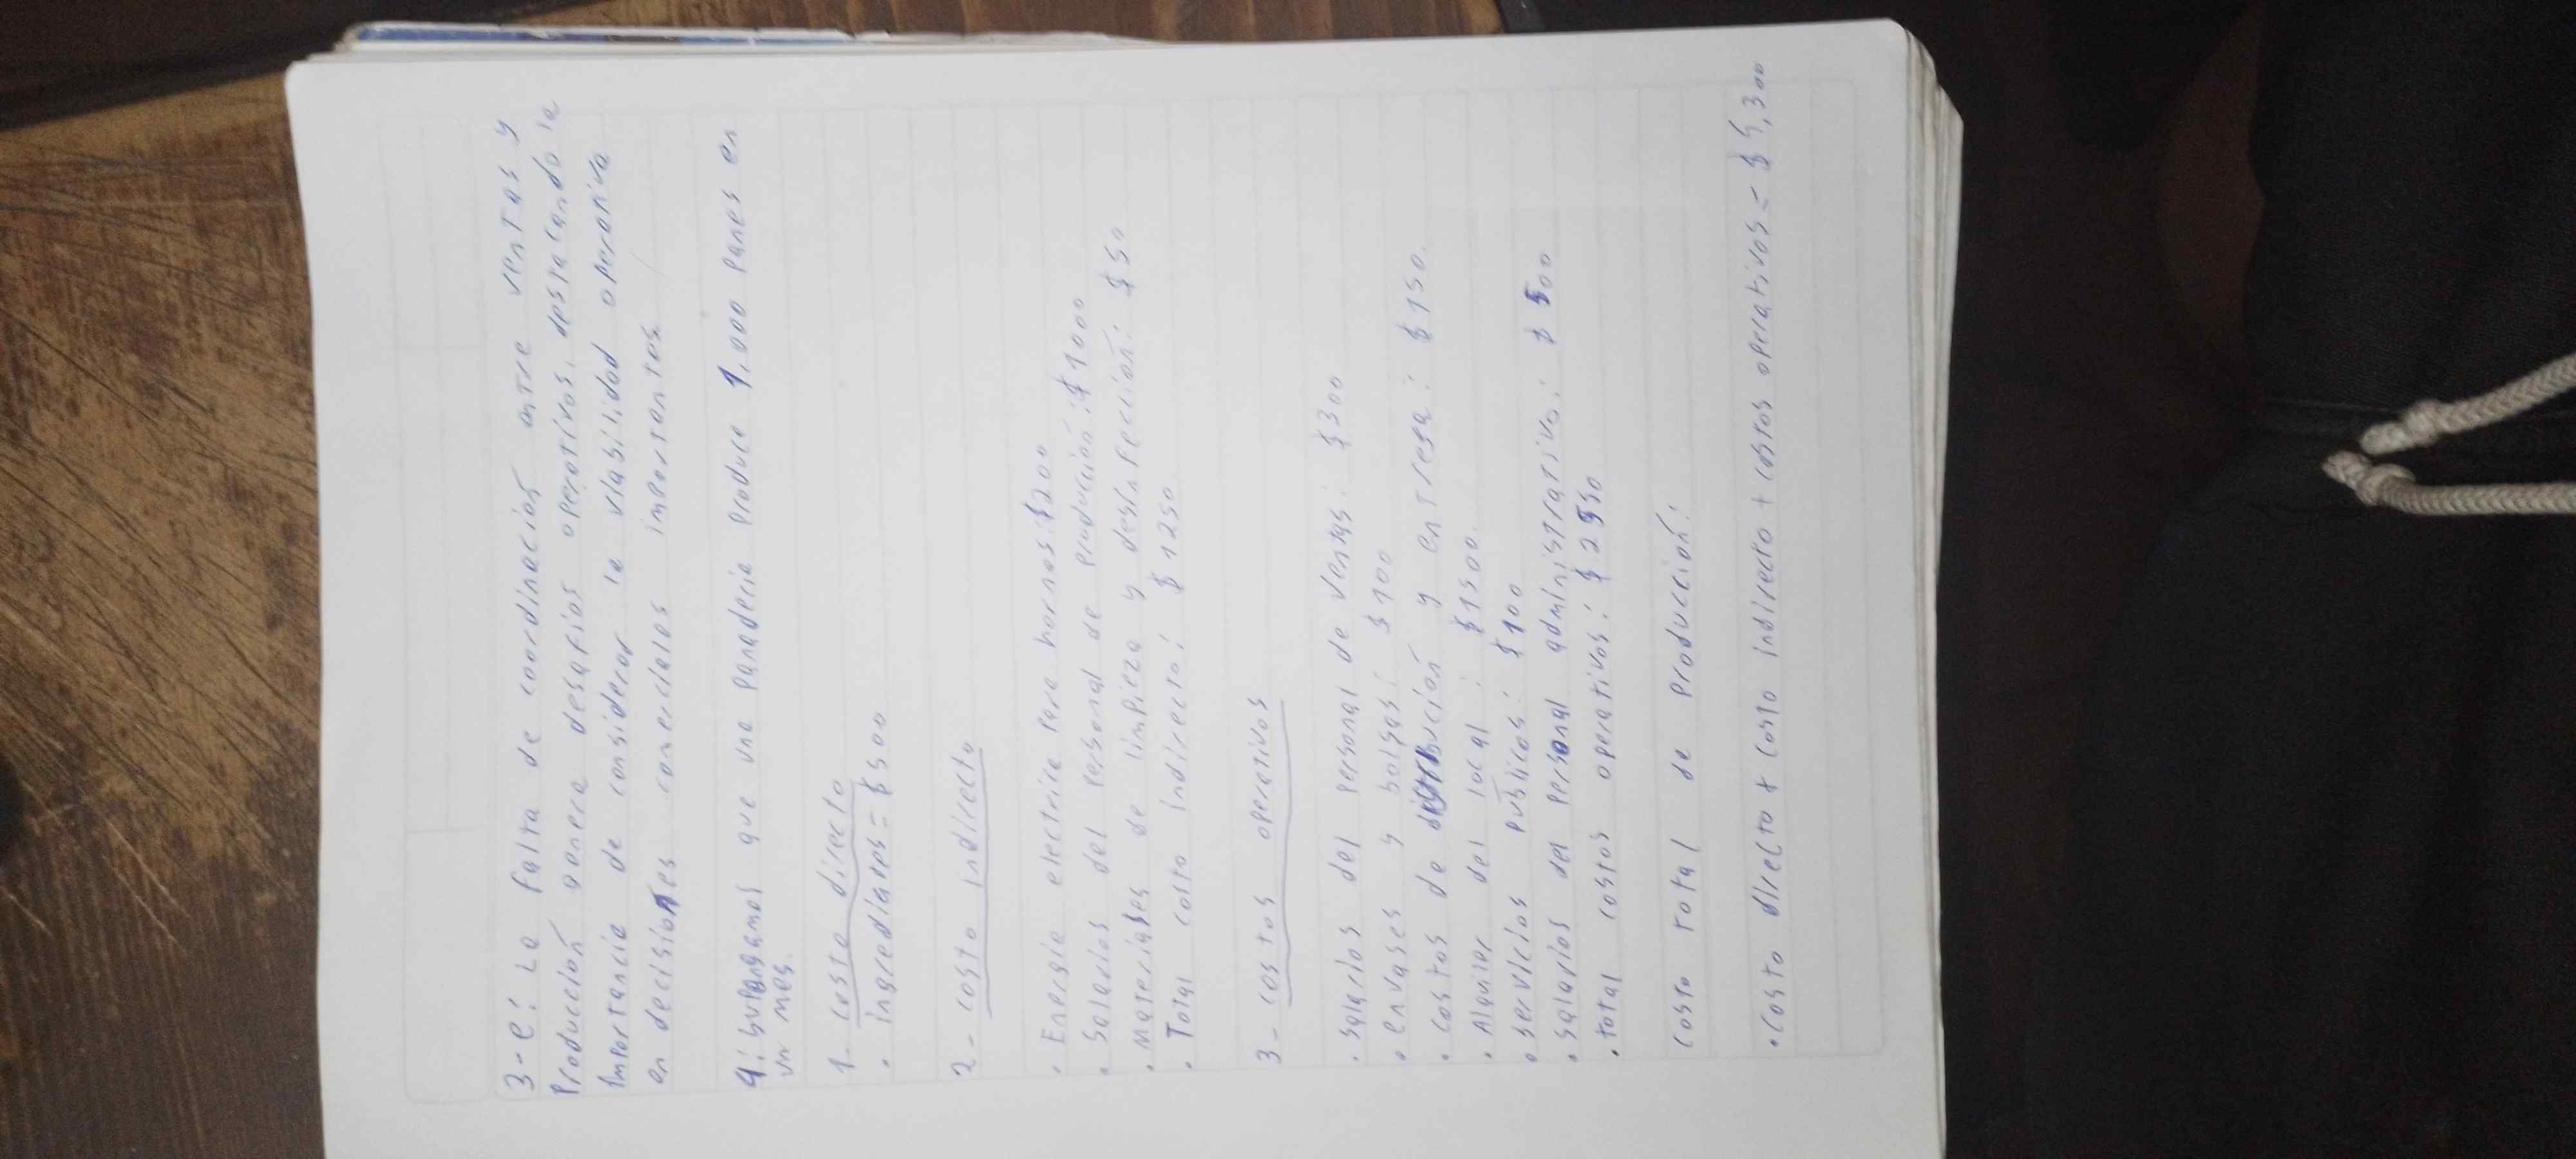 3-e: La falta de coordinación entre ventas y
Producción genera desafíos operativos, destacando la
importancia de considerar la viabilidad operativa
en decisiones comerciales importantes.
4: Supongamos que una panadería produce 1,000 panes en
un mes.
1- costo directo
• ingredientes = $500
2- costo indirecto
• Energía electrica para hornos: $200
• Salarios del personal de producción: $1000
• Materiales de limpieza y desinfección: $50
• Total costo indirecto: $1250
3- costos operativos
• Salarios del personal de ventas: $300
• envases y bolsas: $100
• costos de distribución y entrega: $150.
• Alquiler del local: $1500.
• servicios publicos: $100
• Salarios del personal administrativo: $500
• total costos operativos: $2550
Costo total de producción:
• Costo directo + costo indirecto + costos operativos = $4,300